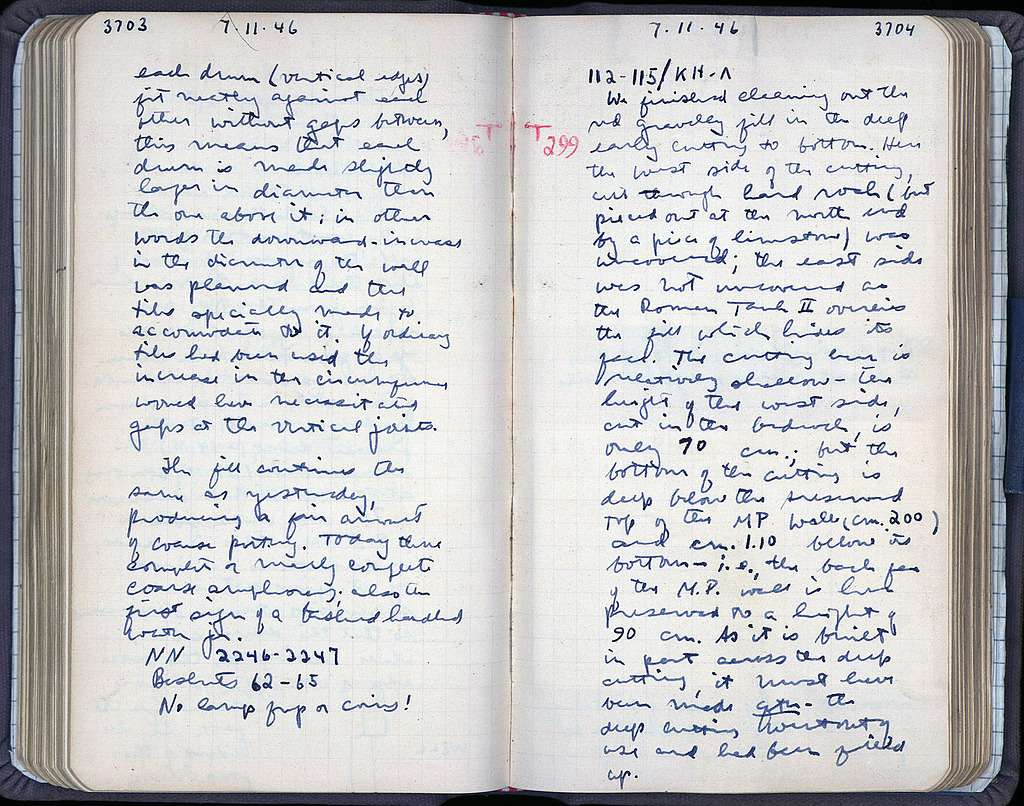 3703 7.11.46
each drum (vertical edges)
fit neatly against each
other without gaps between,
this means that each
drum is made slightly
larger in diameter than
the one above it; in other
words the downward increase
in the diameter of the well
was planned and the
tiles specially made to
accomodate to it. If ordinary
tiles had been used the
increase in the circumference
would have necessitated
gaps at the vertical joints.
The fill continues the
same as yesterday,
producing a fair amount
of coarse pottery. Today three
complete or nearly complete
coarse amphoras; also the
first sign of a basket handled
jar.
NN 2246-2247
Baskets 62-65
No lamp frag or coins!
T
7.11.46 3704
T
299
112-115/KH-Λ
We finished cleaning out the
red gravelly fill in the deep
early cutting to bottom. Here
the west side of the cutting,
cut through hard rock (but
pieced out at the north end
by a piece of limestone) was
uncovered; the east side
was not uncovered as
the Roman Tank II overlies
the fill which hides its
face. The cutting here is
relatively shallow - the
height of the west side,
cut in the bedrock, is
only 70 cm.; but the
bottom of the cutting is
deep below the preserved
top of the MP wall (cm. 200)
and cm. 1.10 below its
bottom - i.e., the back face
of the M.P. wall is here
preserved to a height of
90 cm. As it is built
in part across the deep
cutting, it must have
been made after the
deep cutting went out of
use and had been filled
up.